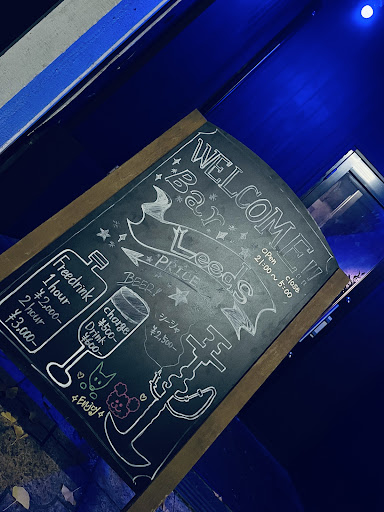 WELCOME!!
Bar
Leeds
PRICE
open close
21:00~5:00
Freedrink
1 hour
¥2,000-
2 hour
¥3,000-
BEER!!
charge
¥500-
Drink
シーシャ
¥2,500-
Enjoy